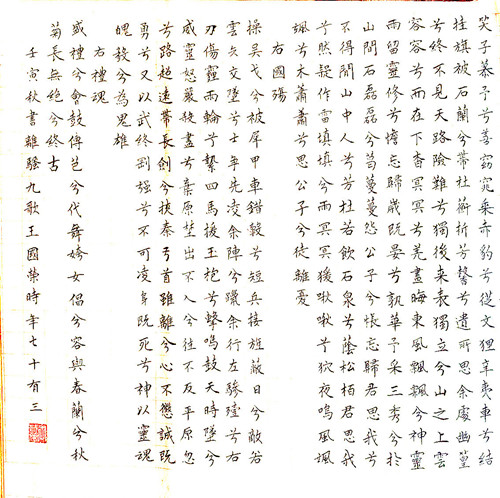 笑子慕予兮善窈窕乘赤豹兮從文狸辛夷車兮結
桂旗被石蘭兮帶杜蘅折芳馨兮遺所思余處幽篁
兮終不見天路險難兮獨後來表獨立兮山之上雲
容容兮而在下杳冥冥兮羌晝晦東風飄飄兮神靈
雨留靈修兮憺忘歸歲既晏兮孰華予采三秀兮於
山間石磊磊兮葛蔓蔓怨公子兮悵忘歸君思我兮
不得閒山中人兮芳杜若飲石泉兮蔭松柏君思我
兮然疑作雷填填兮雨冥冥猨啾啾兮狖夜鳴風颯
颯兮木蕭蕭兮思公子兮徒離憂
右國殤
操吳戈兮被犀甲車錯轂兮短兵接旌蔽日兮敵若
雲矢交墜兮士爭先凌余陣兮躐余行左驂殪兮右
刃傷霾兩輪兮縶四馬援玉枹兮擊鳴鼓天時墜兮
威靈怒嚴殺盡兮棄原埜出不入兮往不反平原忽
兮路超遠帶長劍兮挾秦弓首雖離兮心不懲誠既
勇兮又以武終剛強兮不可凌身既死兮神以靈魂
魄毅兮為鬼雄
右禮魂
成禮兮會鼓傳芭兮代舞姱女倡兮容與春蘭兮秋
菊長無絕兮終古
壬寅秋書離騷九歌王國榮時年七十有三